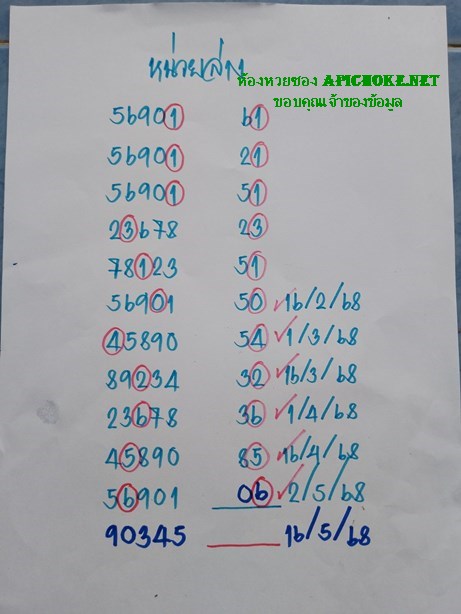 หน่วยล่าง
ห้องหวยซอง APICHOKE.NET
ขอบคุณเจ้าของข้อมูล
56901 61
56901 21
56901 51
23678 23
78123 51
56901 50 ✓16/2/68
45890 54 ✓1/3/68
89234 32 ✓16/3/68
23678 36 ✓1/4/68
45890 85 ✓16/4/68
56901 06 ✓2/5/68
90345 ____ 16/5/68